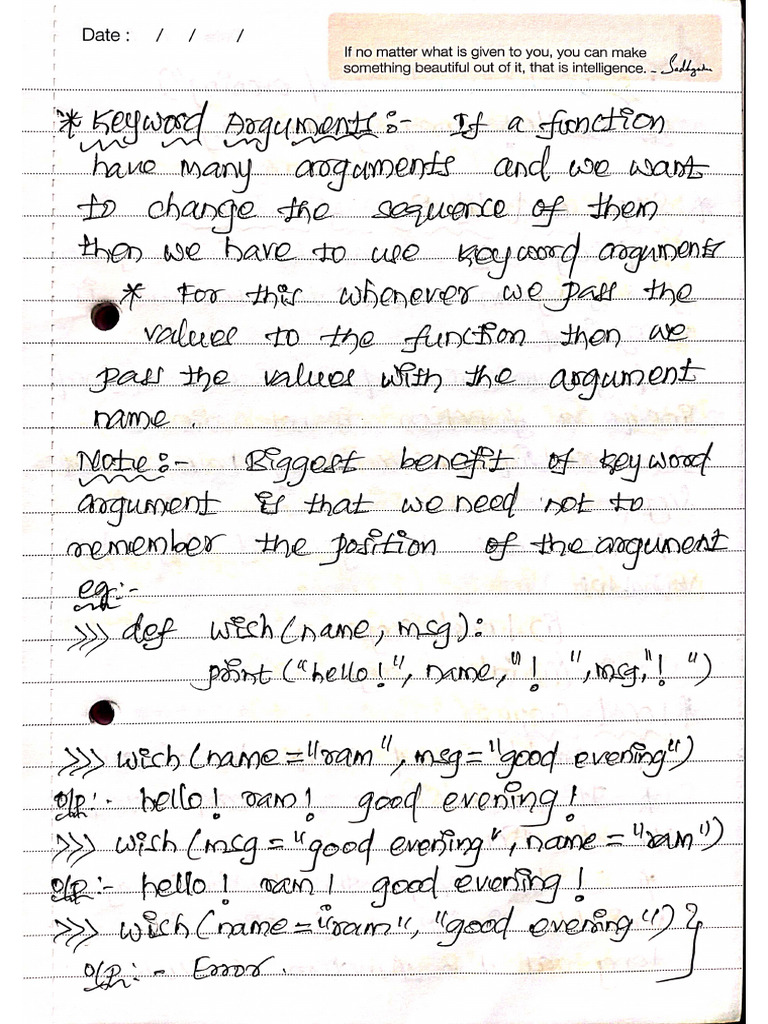 Date : / / /
If no matter what is given to you, you can make
something beautiful out of it, that is intelligence. - Sadhguru
* Keyword Arguments :- If a function
have many arguments and we want
to change the sequence of them
then we have to use keyword arguments
* For this whenever we pass the
values to the function then we
pass the values with the argument
name.
Note :- Biggest benefit of keyword
argument is that we need not to
remember the position of the argument
eg:-
>>> def wish(name, msg):
print("hello!", name,"! ",msg,"! ")
>>> wish(name="ram", msg="good evening")
o/p:- hello! ram! good evening!
>>> wish(msg="good evening", name="ram")
o/p:- hello! ram! good evening!
>>> wish(name="ram", "good evening")}
o/p:- Error.